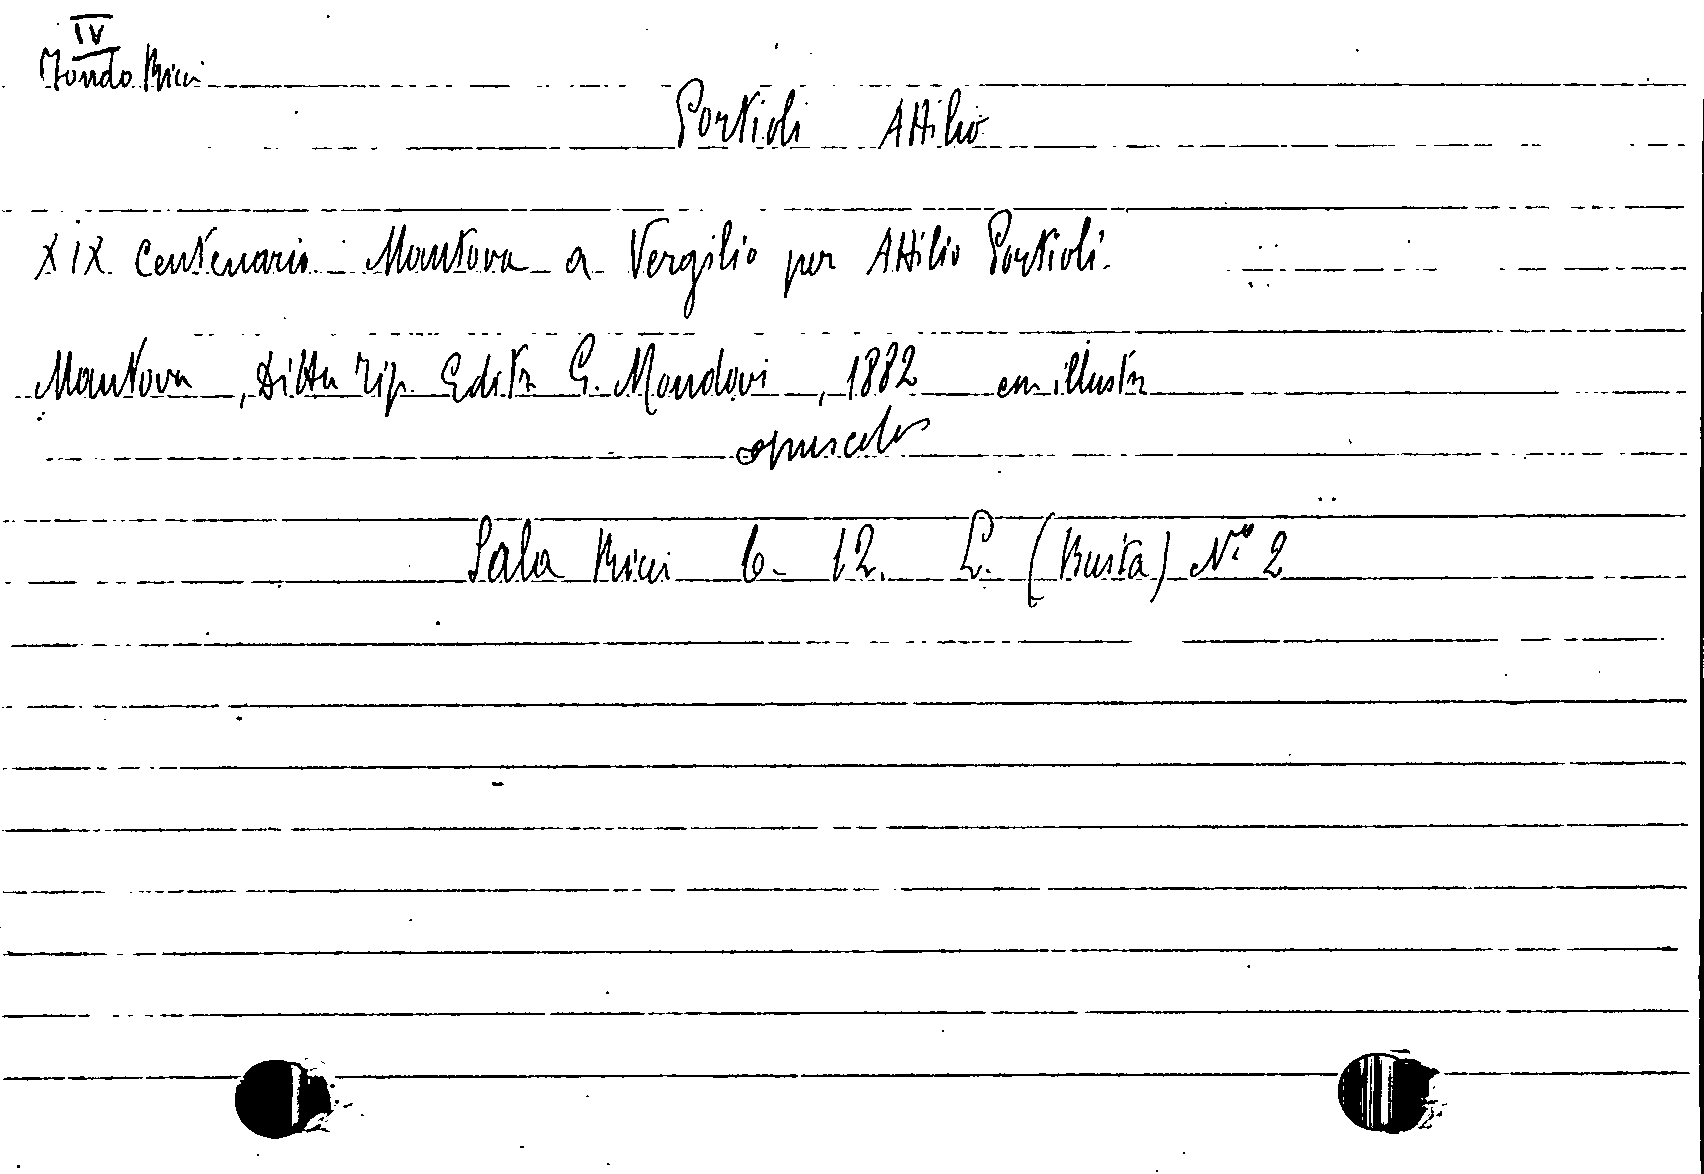 IV
Fondo Ricci
Portioli Attilio
XIX Centenario. Mantova a Vergilio per Attilio Portioli.
Mantova, Ditta Tip. Editr. G. Mondovi, 1882 con illustr
opuscolo
Sala Ricci 6. 12. L. (Busta) N.º 2